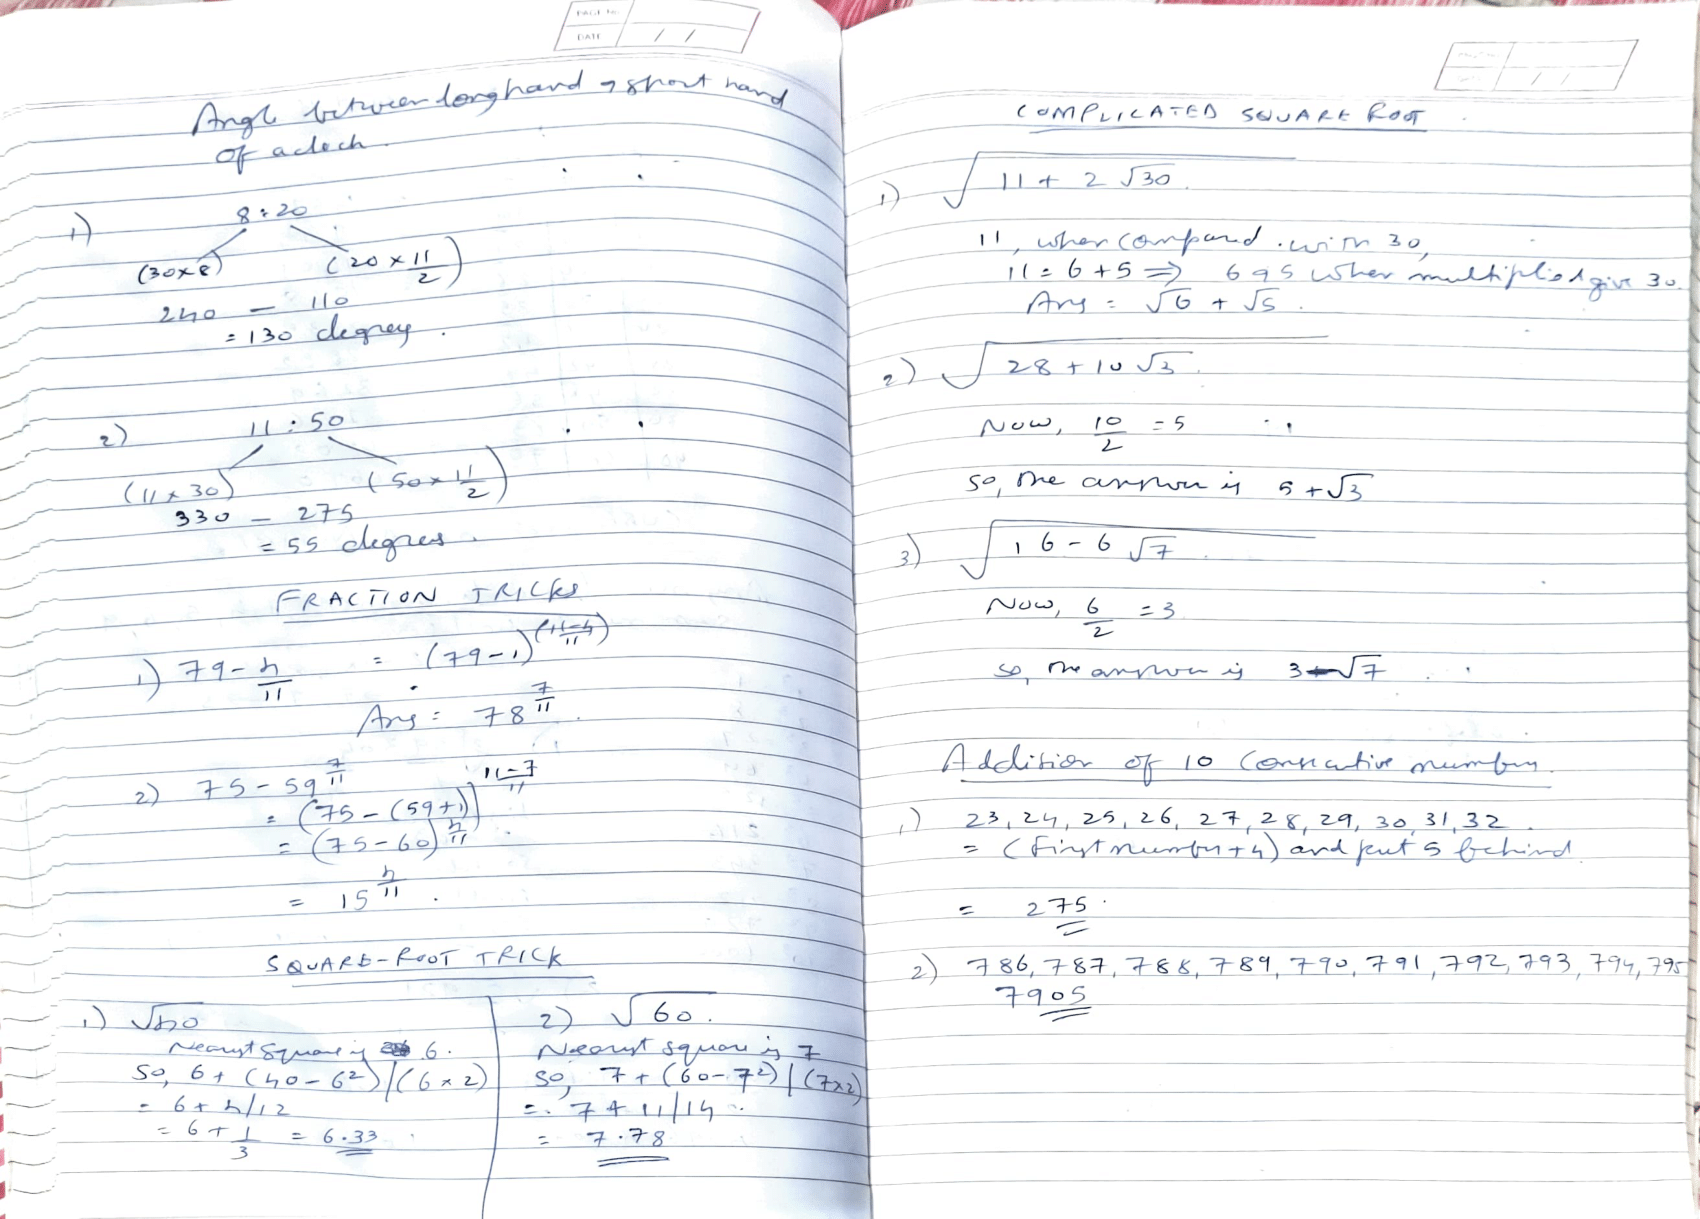 PAGE No.
DATE / /
Angle between long hand & short hand
of a clock.
1) 8:20
(30×8) (20 × 11/2)
240 – 110
= 130 degrees.
2) 11:50
(11 × 30) (50 × 11/2)
330 – 275
= 55 degrees.
FRACTION TRICKS
1) 79 - 4/11 = (79-1) (11-4/11)
Ans = 78 7/11
2) 75 - 59 7/11
= (75 - (59+1)) 11-7/11
= (75-60) 4/11
= 15 4/11.
SQUARE-ROOT TRICK
1) √40
Nearest square is 6.
So, 6 + (40 - 6²) / (6 × 2)
= 6 + 4/12
= 6 + 1/3 = 6.33
2) √60.
Nearest square is 7
So, 7 + (60 - 7²) / (7×2)
= 7 + 11/14
= 7.78
/ /
COMPLICATED SQUARE ROOT
1) √11 + 2√30
11, when compared with 30,
11 = 6 + 5 ⇒ 6 & 5 when multiplied give 30.
Ans = √6 + √5.
2) √28 + 10√3
Now, 10/2 = 5
So, the answer is 5 + √3
3) √16 - 6√7
Now, 6/2 = 3
So, the answer is 3 - √7
Addition of 10 Consecutive numbers.
1) 23, 24, 25, 26, 27, 28, 29, 30, 31, 32.
= (First number + 4) and put 5 behind.
= 275
2) 786, 787, 788, 789, 790, 791, 792, 793, 794, 795
7905